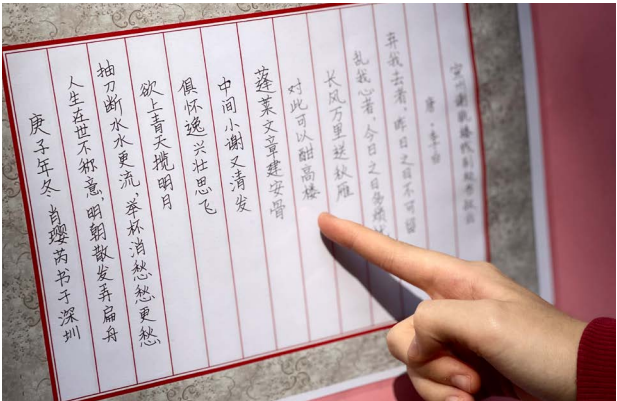 宣州谢朓楼饯别校书叔云
唐·李白
弃我去者,昨日之日不可留
乱我心者,今日之日多烦
长风万里送秋雁
对此可以酣高楼
蓬莱文章建安骨
中间小谢又清发
俱怀逸兴壮思飞
欲上青天揽明月
抽刀断水水更流,举杯消愁愁更愁
人生在世不称意,明朝散发弄扁舟
庚子年冬 肖璎芮书于深圳